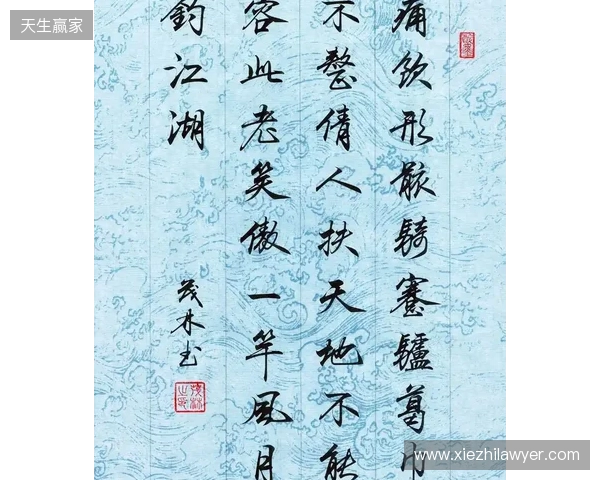 天生赢家
痛飲形骸騎蹇驢葛巾
不整倩人扶天地不能
容此老笑傲一竿風月
釣江湖
茂林书
www.xiezhilawyer.com